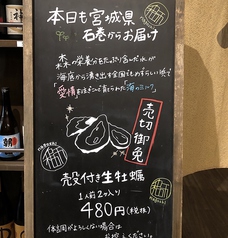 本日も宮城県
石巻からお届け
森の栄養分をたっぷり含んだ水が
海底から湧き出す全国でもめずらしい浜で
「愛情をそそいで育てられた「海のミルク」
売切御免
殻付き生牡蠣
1人前2ヶ入り
480円(税抜)
体調がよろしくない場合は
お控えください